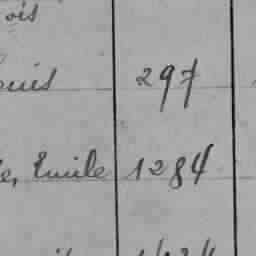 ois
ouis 297
e, Emile 1284